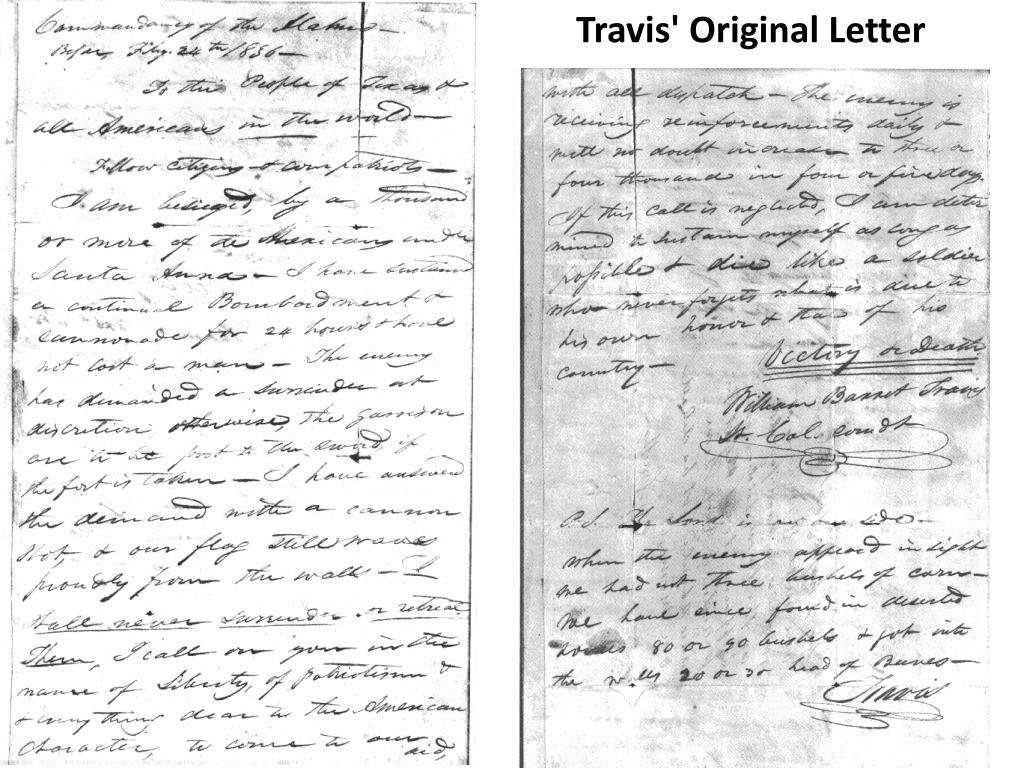 Travis' Original Letter
Commandancy of the Alamo—
Bejar, Feby. 24th 1836—
To the People of Texas &
all Americans in the world—
Fellow citizens & compatriots—
I am besieged, by a thousand
or more of the Mexicans under
Santa Anna— I have sustained
a continual Bombardment &
cannonade for 24 hours & have
not lost a man— The enemy
has demanded a surrender at
discretion, otherwise, the garrison
are to be put to the sword, if
the fort is taken— I have answered
the demand with a cannon
shot, & our flag still waves
proudly from the walls— I
shall never surrender or retreat
Then, I call on you in the
name of Liberty, of patriotism &
& everything dear to the American
character, to come to our aid,
with all dispatch— The enemy is
receiving reinforcements daily &
will no doubt increase to three or
four thousand in four or five days.
If this call is neglected, I am deter
mined to sustain myself as long as
possible & die like a soldier
who never forgets what is due to
his own honor & that of his
country—
Victory or Death
William Barret Travis
Lt. Col. comdt
P.S. The Lord is on our side—
When the enemy appeared in sight
we had not three bushels of corn—
We have since found in deserted
houses 80 or 90 bushels & got into
the walls 20 or 30 head of Beeves—
Travis